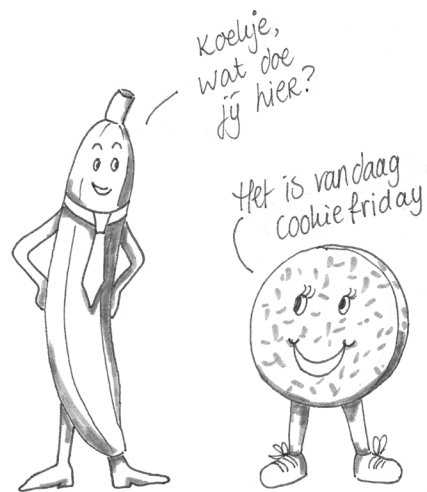 Koekje,
wat doe
jij hier?
Het is vandaag
cookiefriday